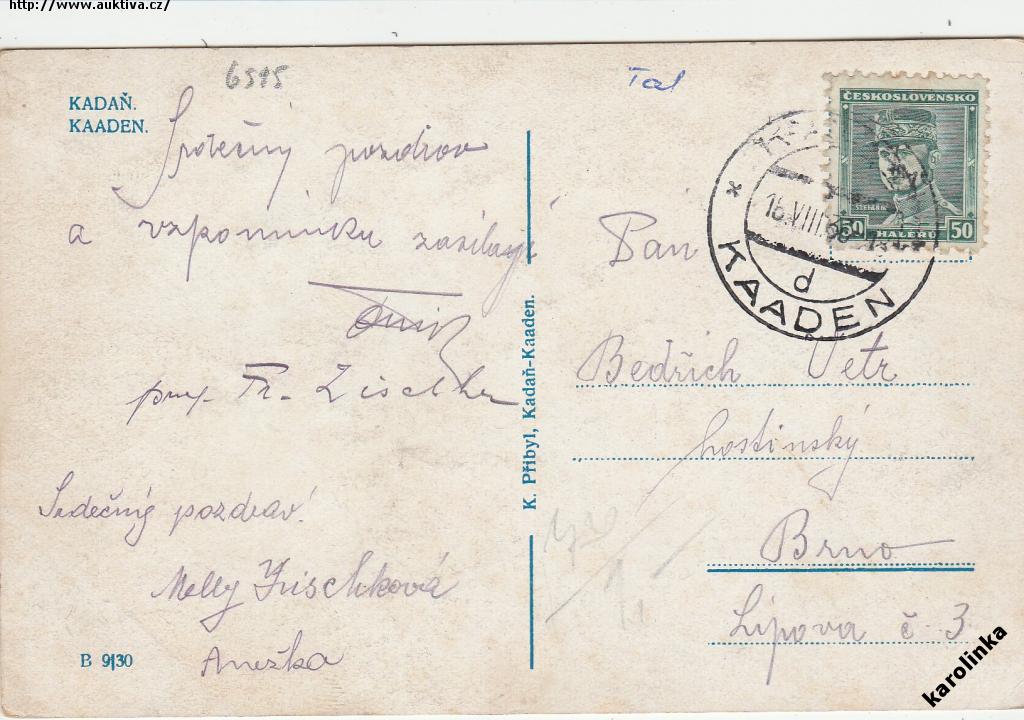 http://www.auktiva.cz/
6515
Tal
KADAŇ.
KAADEN.
Srdečný pozdrav
a vzpomínku zasílají
prof. Fr.
Srdečný pozdrav.
Nelly
Anežka
B 9|30
K. Přibyl, Kadaň-Kaaden.
ČESKOSLOVENSKO
ŠTEFÁNIK
50 HALÉŘŮ 50
15.VIII.
d
* KAADEN
Pan
Bedřich Vetr
hostinský
Brno
Lipova č 3
karolinka